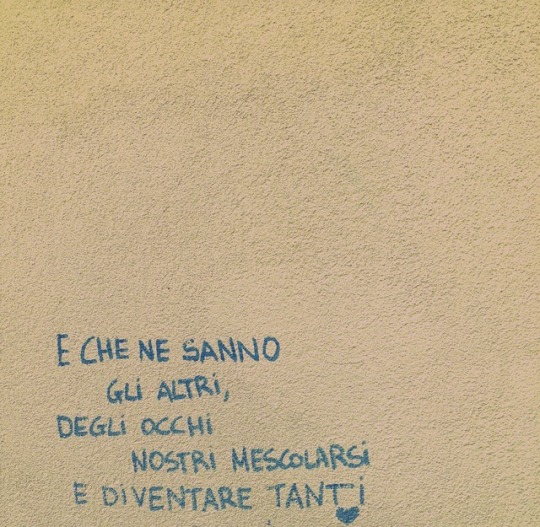 E CHE NE SANNO
GLI ALTRI,
DEGLI OCCHI
NOSTRI MESCOLARSI
E DIVENTARE TANTI